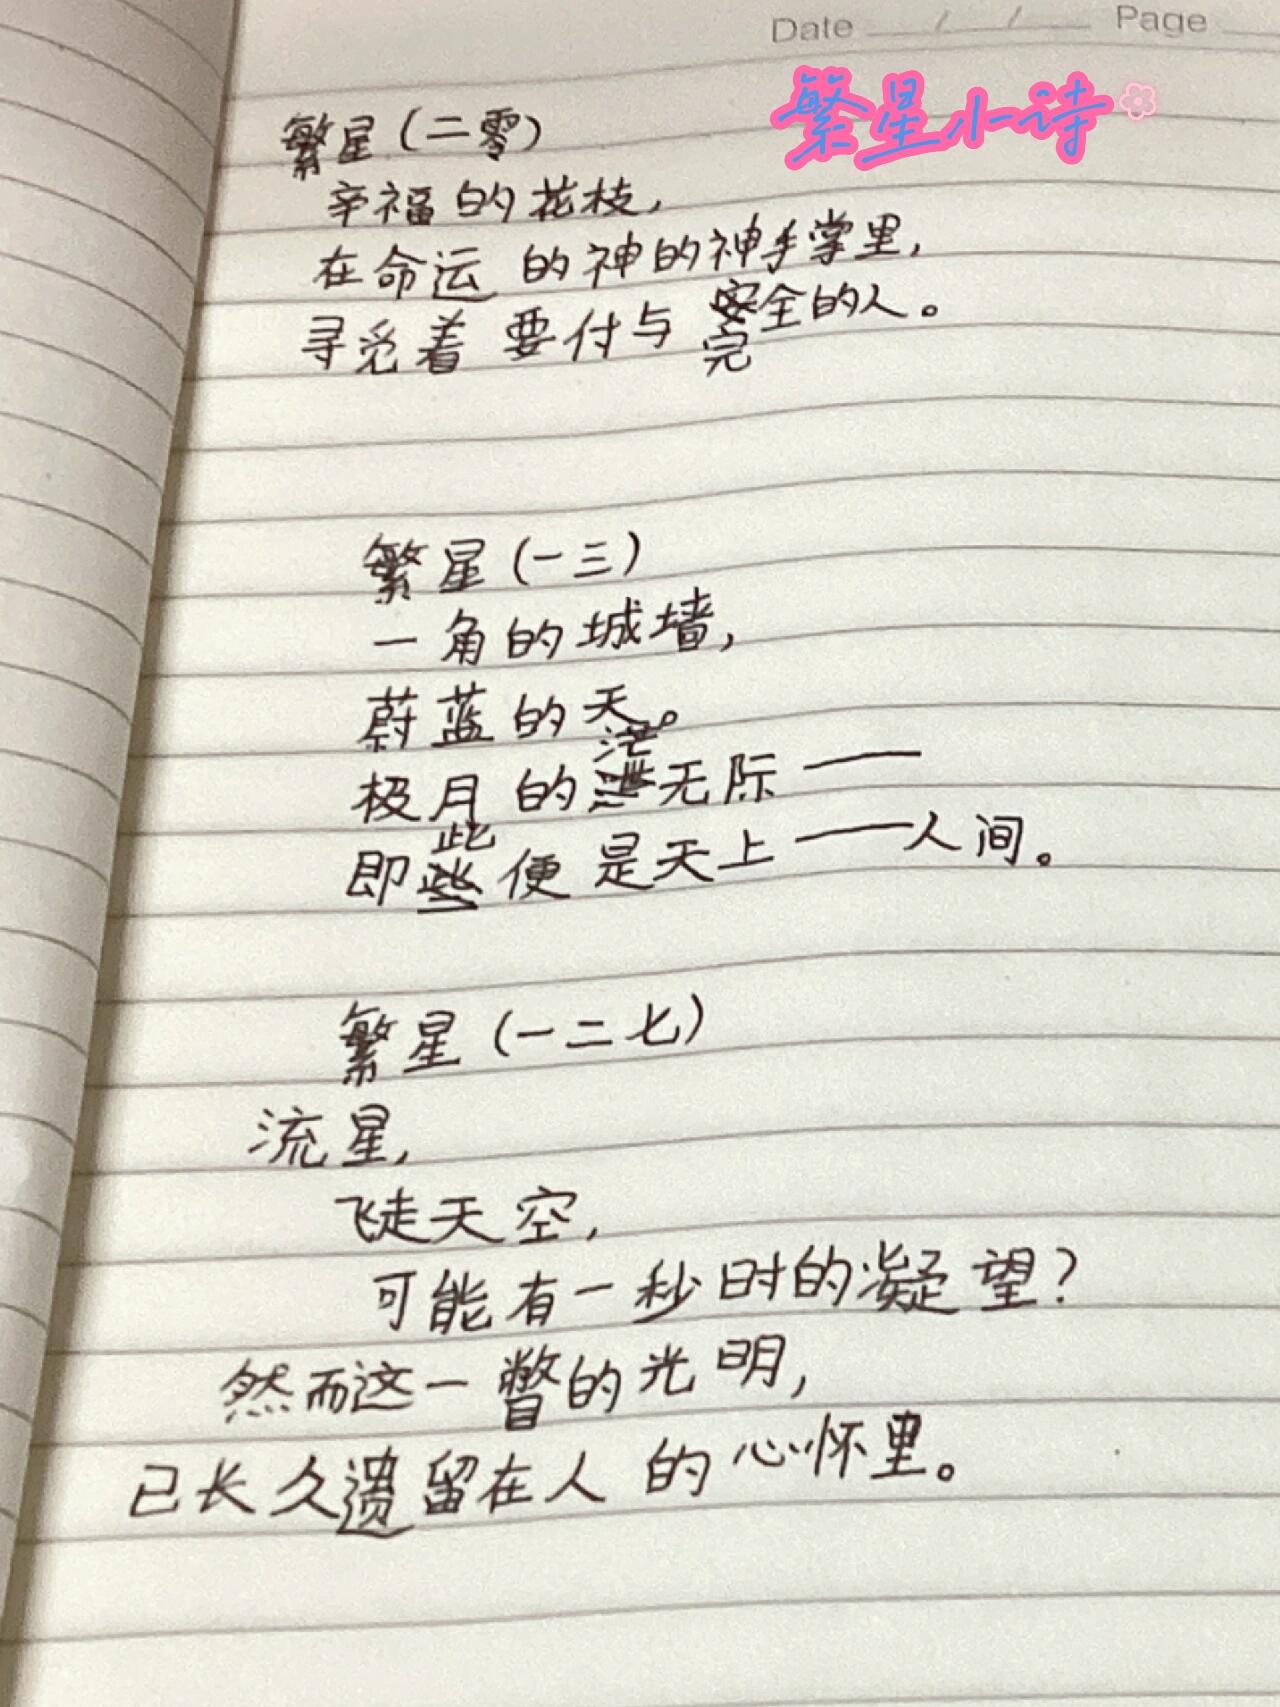 Date / / Page
繁星小诗
繁星(二零)
幸福的花枝,
在命运的神的神手掌里,
寻觅着要付与完全的人。
繁星(一三)
一角的城墙,
蔚蓝的天。
极月的茫无际——
即此便是天上——人间。
繁星(一二七)
流星,
飞走天空,
可能有一秒时的凝望?
然而这一瞥的光明,
已长久遗留在人的心怀里。